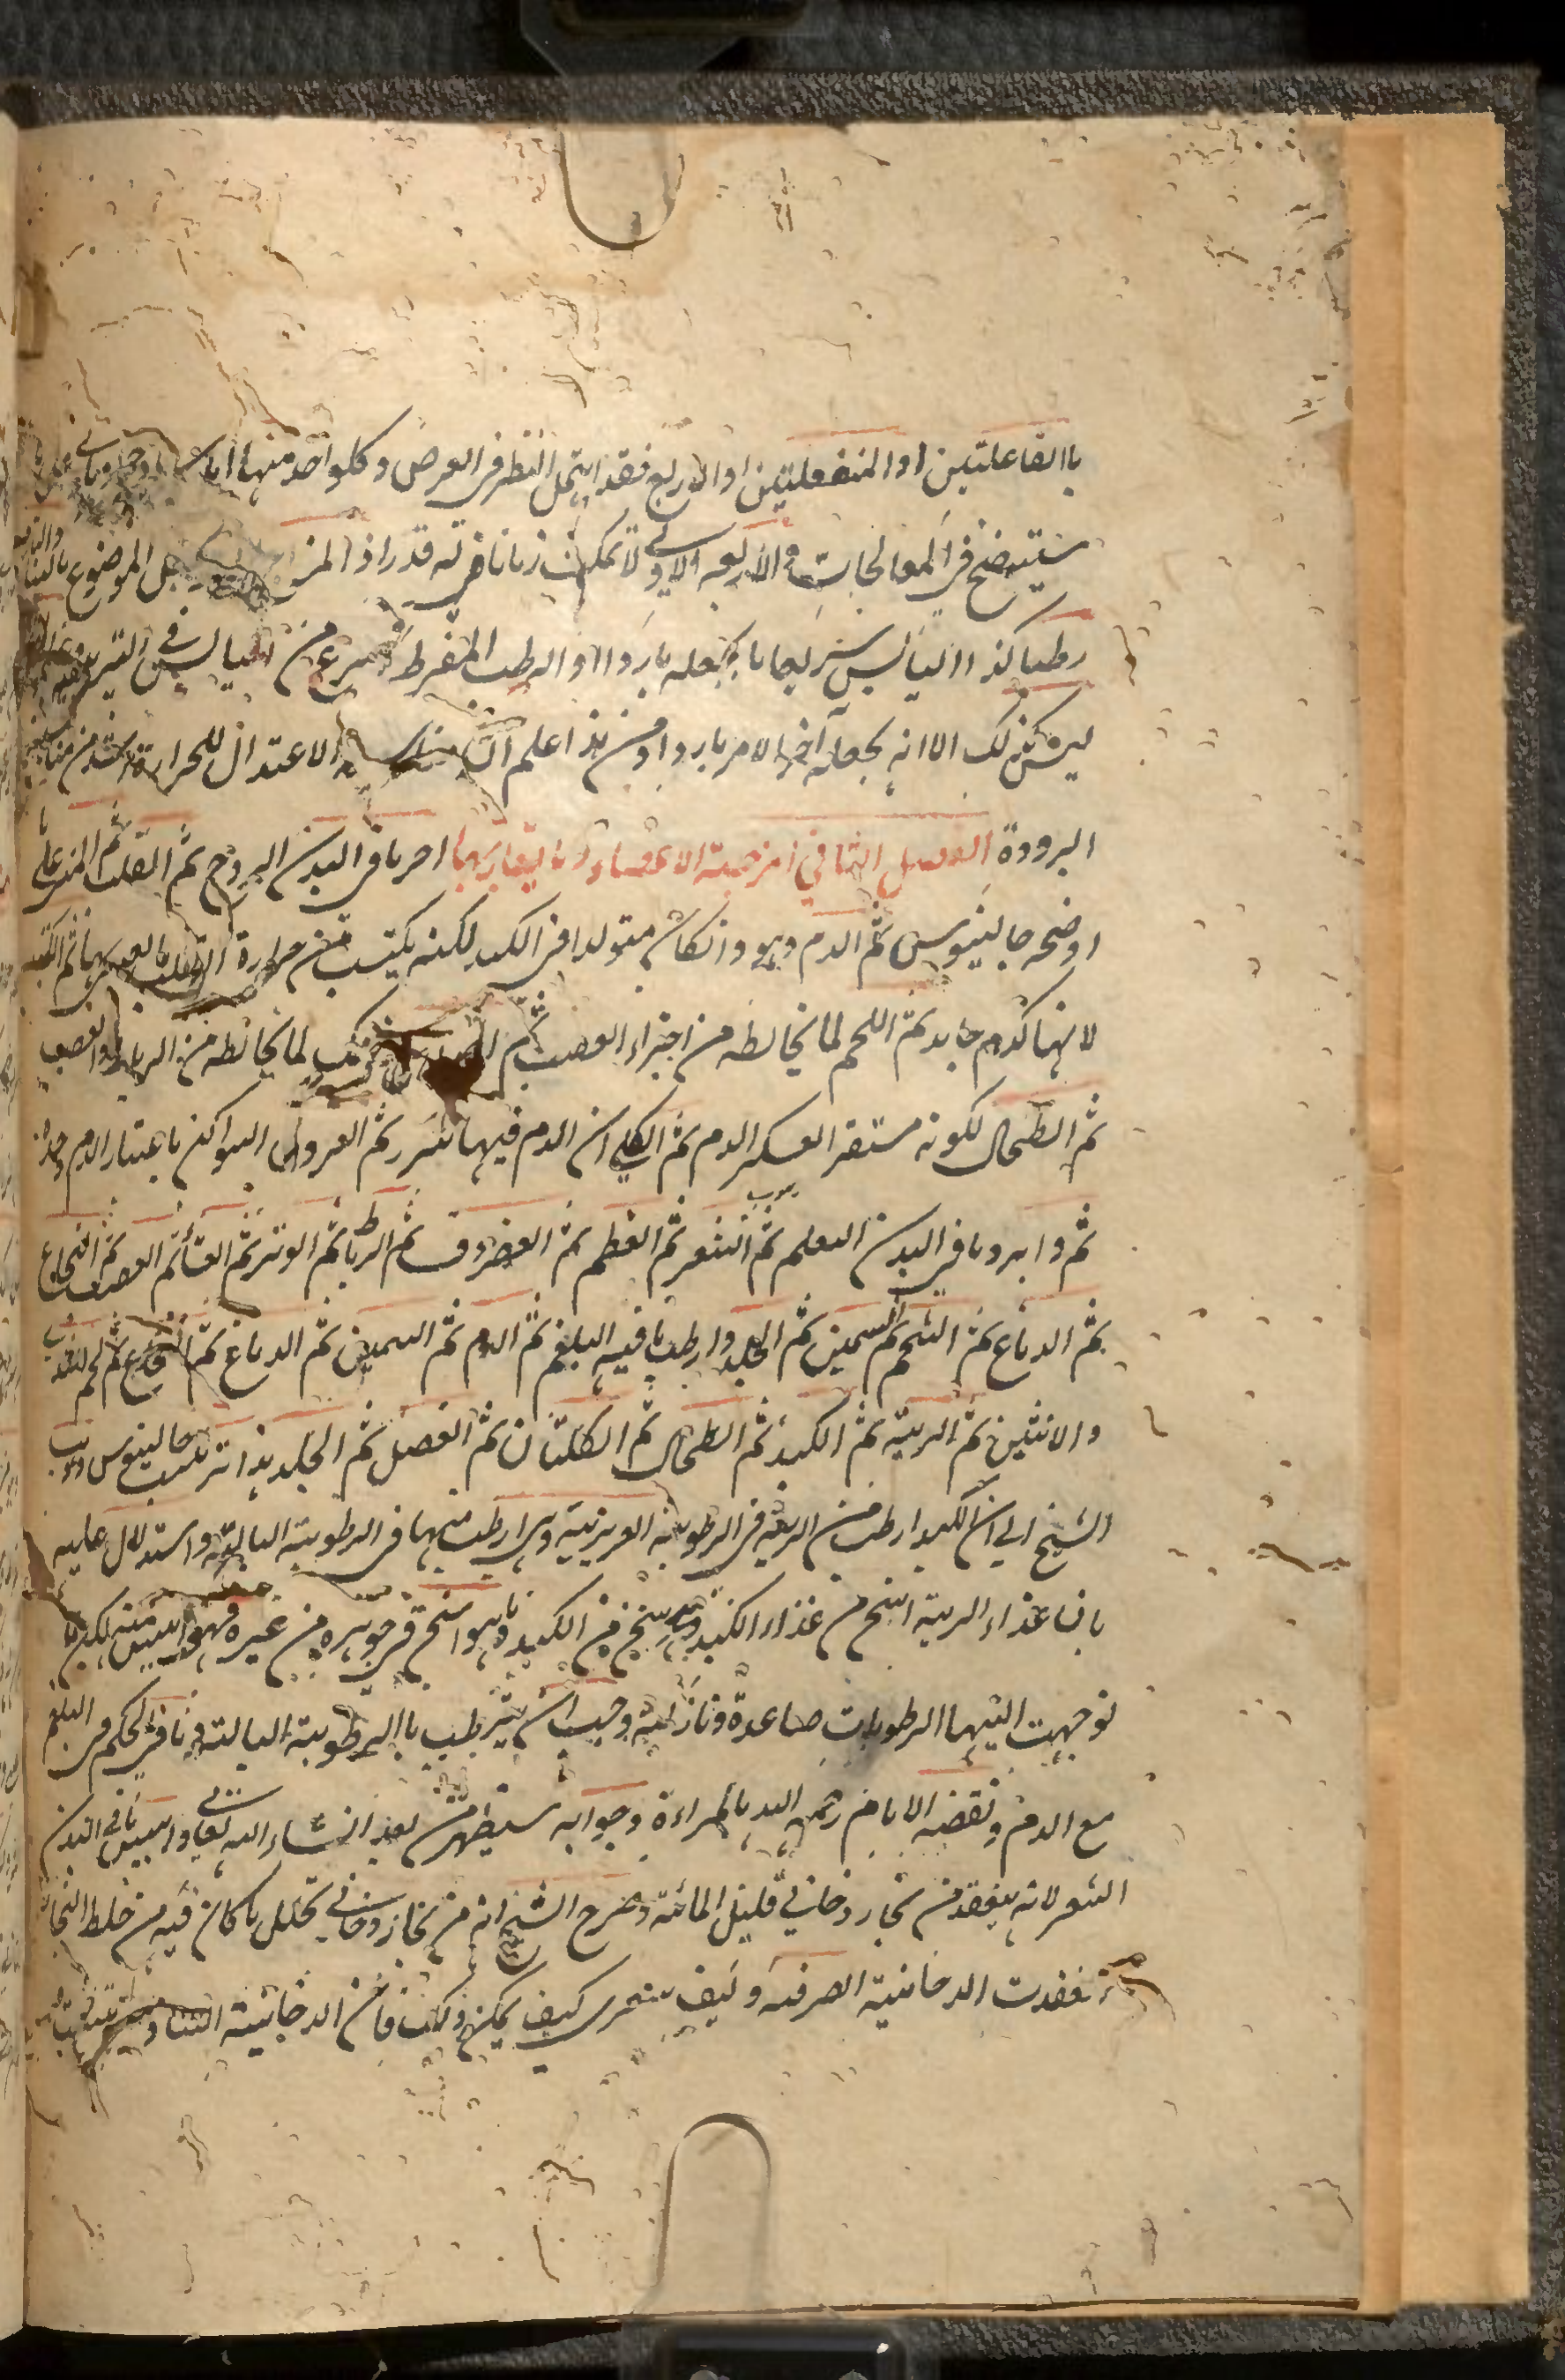 باالفاعلتين او المنفعلتين او الاربع فقد ابتمل النظر في العرض وكلواحد منها اما
سيتضح في المعالجات والاربعة الاولى لا تمكث زمانا في له قدر اذ الموضوع
رطبا كذا اليابس سريعا ما يجعله باردا او الرطب المفرط اسرع من اليابس في
ليس كذلك الا انه يجعله آخر الامر باردا ومن هذا اعلم ان الاعتدال للحرارة اشد من مناسبة
البرودة الفصل الثاني امزجة الاعضاء وما يقاربها احر ما في البدن الروح ثم القلب ثم المني على ما
اوضحه جالينوس ثم الدم وهو وانكان متولدا في الكبد لكنه يكتسب من حرارة القلب ما ليس لها ثم الكبد
لانها كدم جامد ثم اللحم لما يخالطه من اجزاء العصب ثم لما يخالطه من الرباط والعصب
ثم الطحال لكونه مستقر العسكر الدم ثم الكلي ان الدم فيها نزر ثم العروق السواكن باعتبار الدم وحده
ثم وابرد ما في البدن البلغم ثم الشعر ثم العظم ثم الغضروف ثم الرباط ثم الوتر ثم الغشاء ثم العصب ثم النخاع
ثم الدماغ ثم الشحم ثم السمين ثم الجلد وارطب ما فيه البلغم ثم الدم ثم السمين ثم الدماغ ثم النخاع ثم لحم الثدي
والانثيين ثم الرية ثم الكبد ثم الطحال ثم الكليتان ثم العضل ثم الجلد هذا ترتيب جالينوس وذهب
الشيخ الى ان الكبد ارطب من الرية في الرطوبة الغريزية وهي ارطب منها في الرطوبة البالة واستدلال عليه
بان غذاء الرية اسخن من غذاء الكبد من الكبد وما هو اسخن في جوهره من غيره فهو ايبس منه لكن لما
توجهت اليها الرطوبات صاعدة ونازلة وجب ان يترطب باالرطوبة البالة وما في الحكم في البلغم
مع الدم ونقضه الامام رحمه الله بالمراءة وجوابه سيظهر من بعد انشاء الله تعالى وايبس ما في البدن
الشعر لانه ينعقد من بخار دخاني قليل المائية وصرح الشيخ انه من بخار دخاني تحلل ما كان فيه من خلط البخار
انعقدت الدخانية الصرفة وليف شعري كيف يمكن ذلك فان الدخانية